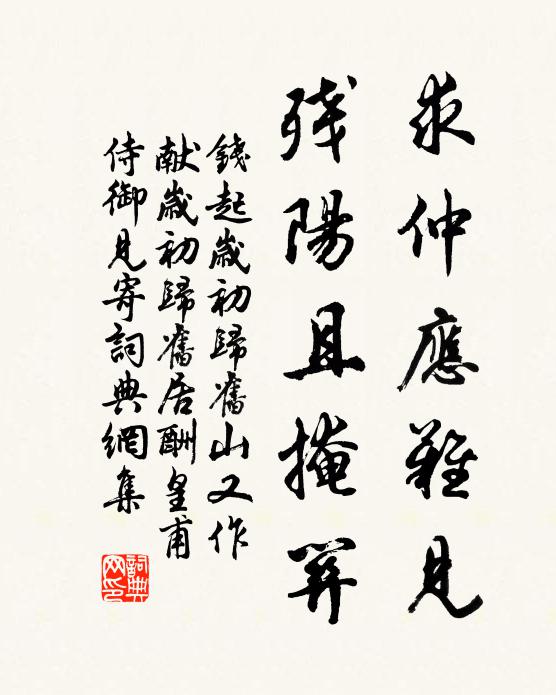 求仲應難見
残陽且掩關
錢起歲初歸舊山又作
献歲初歸舊居酬皇甫
侍御見寄詞典網集
詞典
网印